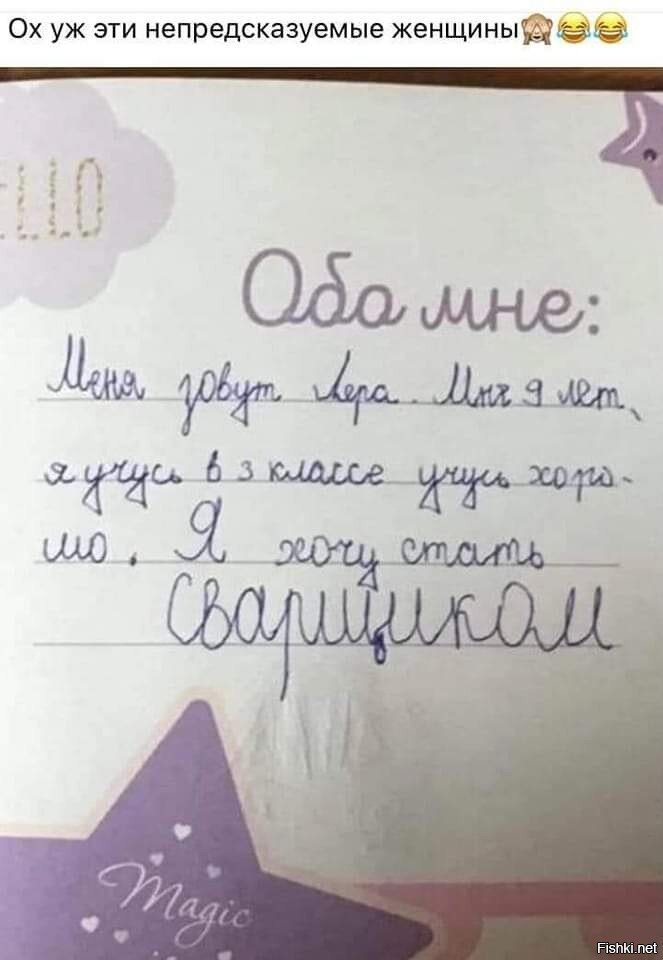 Ох уж эти непредсказуемые женщины🙈😂😂
ELLO
Обо мне:
Меня зовут Лера. Мне 9 лет,
я учусь в 3 классе учусь хоро-
шо. Я хочу стать
сварщиком
Magic
Fishki.net